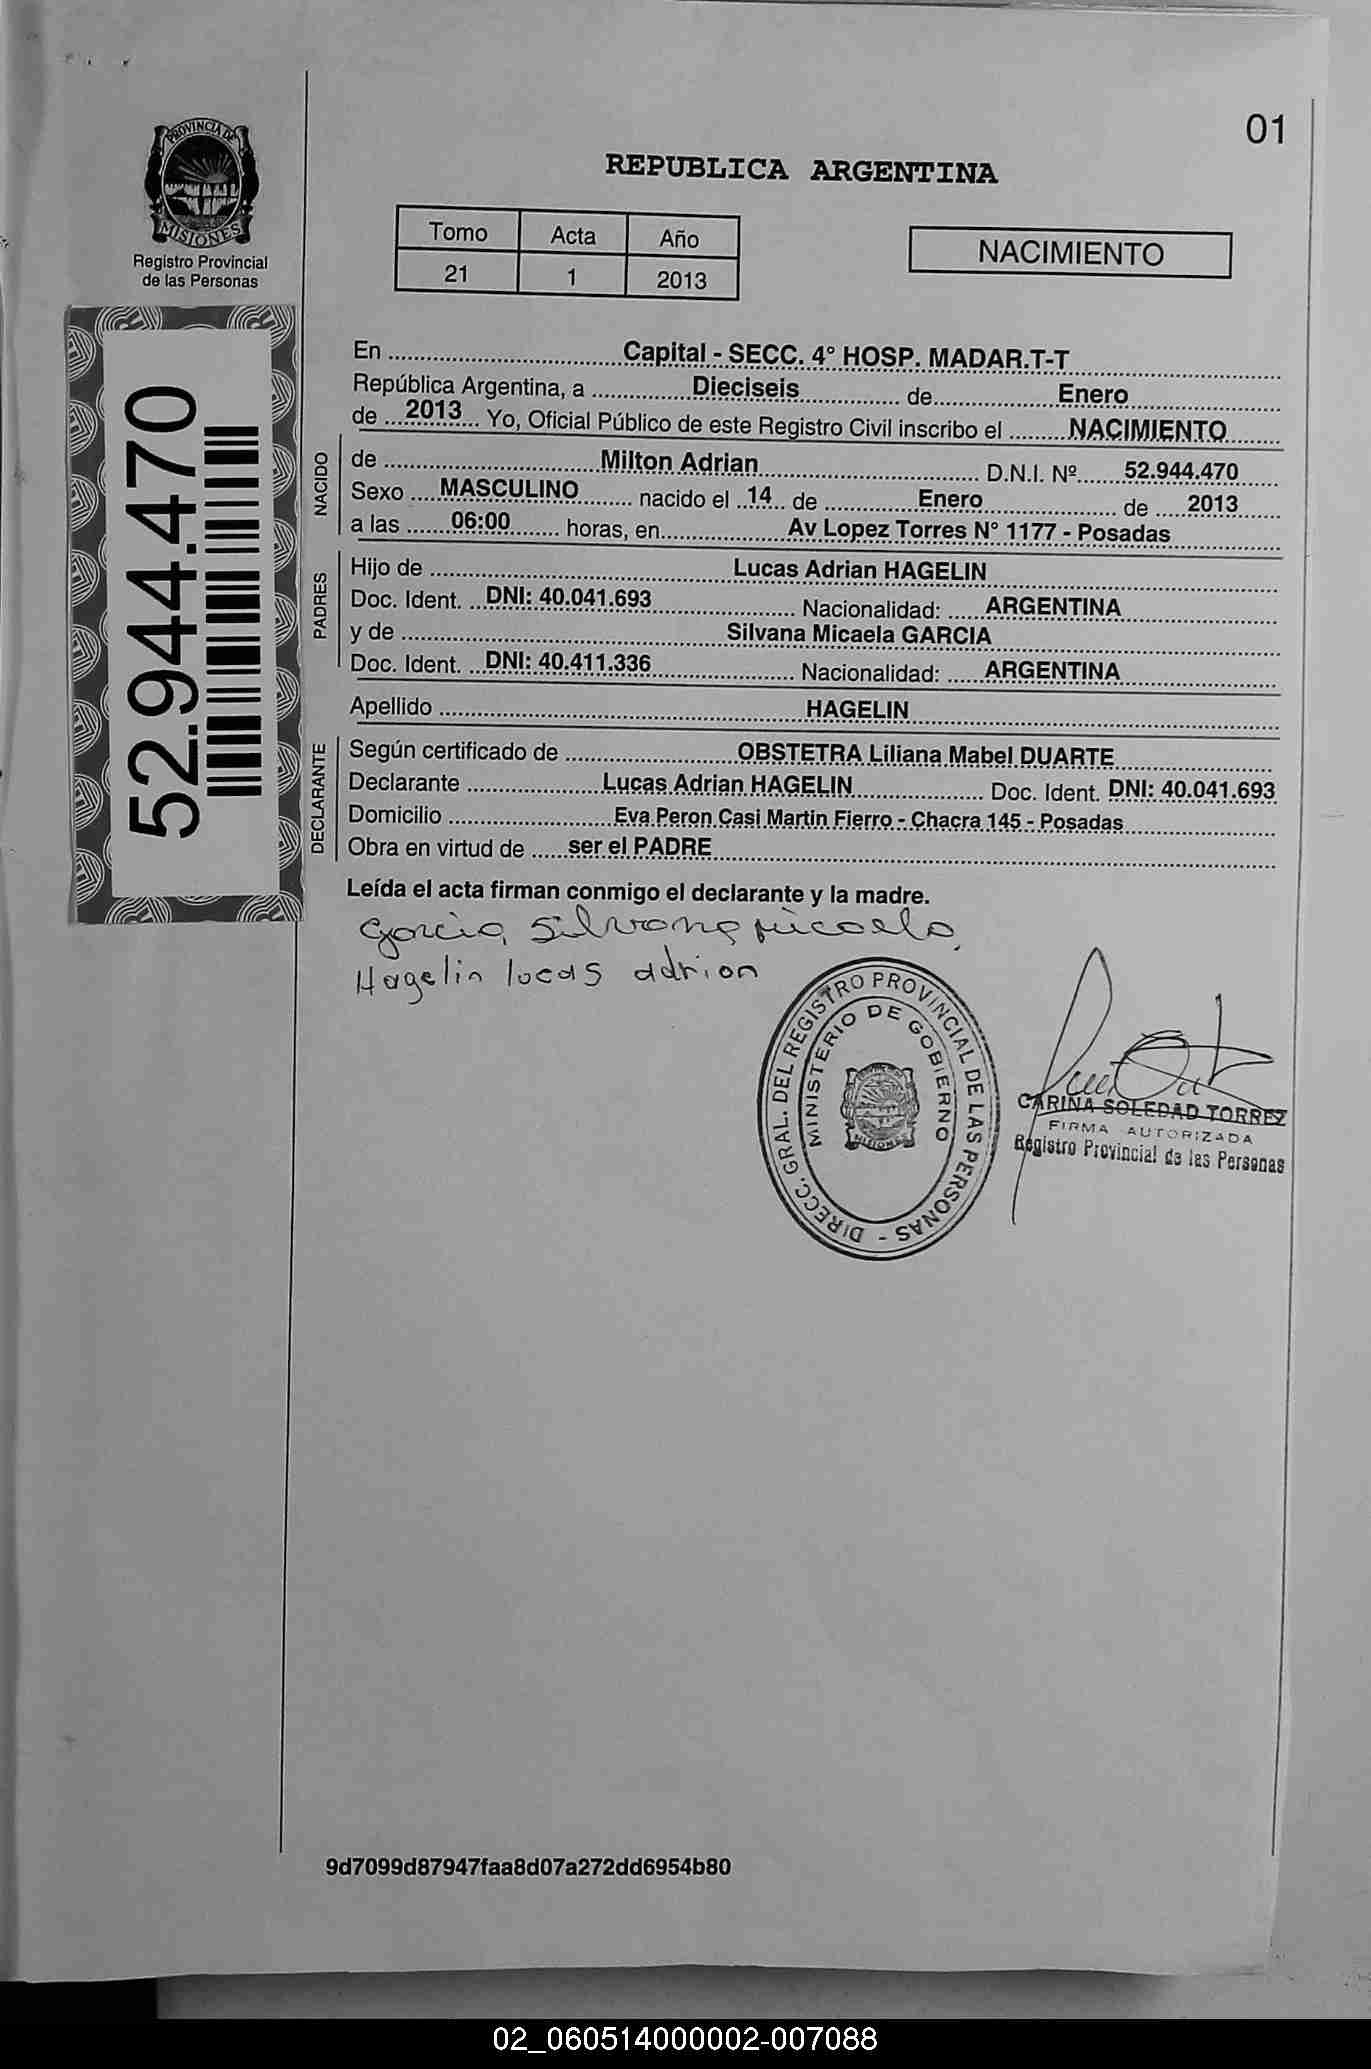 01
PROVINCIA DE
MISIONES
Registro Provincial
de las Personas
REPUBLICA ARGENTINA
Tomo Acta Año
21 1 2013
NACIMIENTO
52.944.470
En Capital - SECC. 4° HOSP. MADAR.T-T
República Argentina, a Dieciseis de Enero
de 2013 Yo, Oficial Público de este Registro Civil inscribo el NACIMIENTO
NACIDO
de Milton Adrian D.N.I. Nº 52.944.470
Sexo MASCULINO nacido el 14 de Enero de 2013
a las 06:00 horas, en Av Lopez Torres N° 1177 - Posadas
PADRES
Hijo de Lucas Adrian HAGELIN
Doc. Ident. DNI: 40.041.693 Nacionalidad: ARGENTINA
y de Silvana Micaela GARCIA
Doc. Ident. DNI: 40.411.336 Nacionalidad: ARGENTINA
Apellido HAGELIN
DECLARANTE
Según certificado de OBSTETRA Liliana Mabel DUARTE
Declarante Lucas Adrian HAGELIN Doc. Ident. DNI: 40.041.693
Domicilio Eva Peron Casi Martin Fierro - Chacra 145 - Posadas
Obra en virtud de ser el PADRE
Leída el acta firman conmigo el declarante y la madre.
Garcia, Silvana micaela
Hagelin lucas adrian
DIRECC. GRAL. DEL REGISTRO PROVINCIAL DE LAS PERSONAS -
MINISTERIO DE GOBIERNO
MISIONES
CARINA SOLEDAD TORREZ
FIRMA AUTORIZADA
Registro Provincial de las Personas
9d7099d87947faa8d07a272dd6954b80
02_060514000002-007088